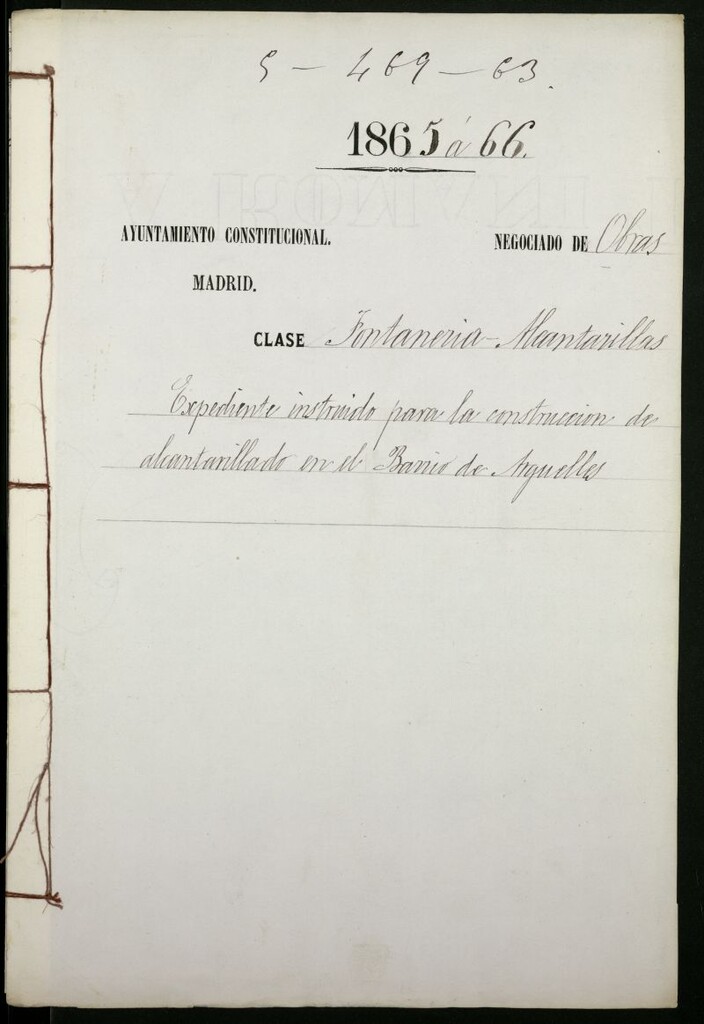 5 - 469 - 63.
1865 á 66.
AYUNTAMIENTO CONSTITUCIONAL. NEGOCIADO DE Obras
MADRID.
CLASE Fontaneria - Alcantarillas
Expediente instruido para la construccion de
alcantarillado en el Barrio de Arguelles